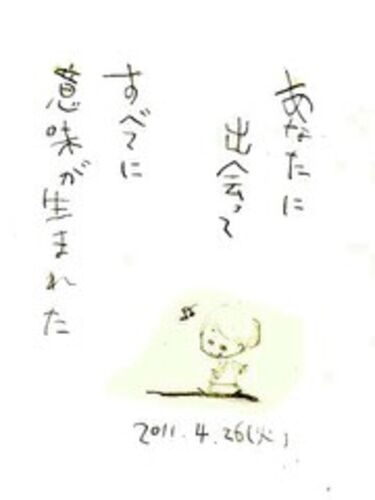 あなたに
出会って
すべてに
意味が生まれた
2011.4.26(火)